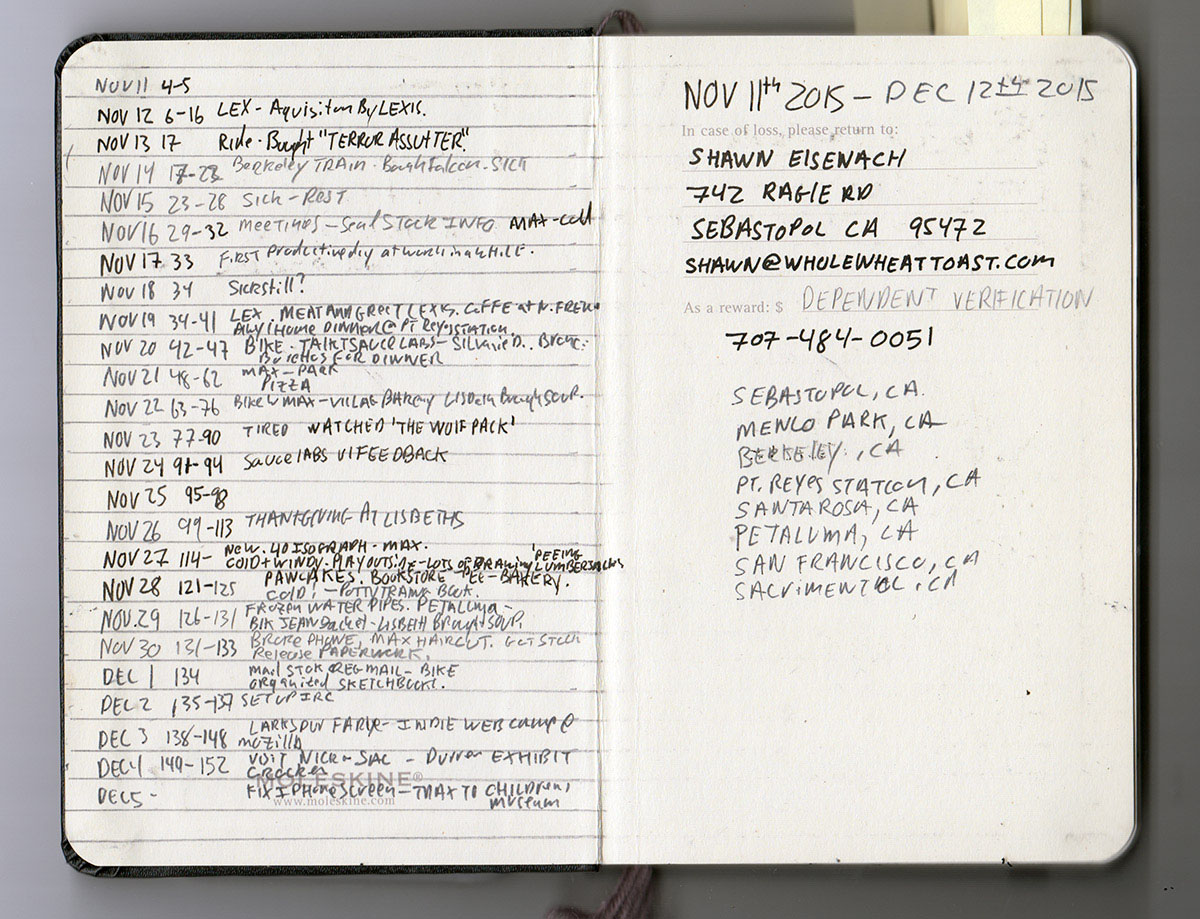 NOV 11 4-5
NOV 12 6-16 LEX - Aquisiton By LEXIS.
NOV 13 17 Ride - Bought "TERROR ASSUTTER"
NOV 14 17-23 Berkeley TRAIN - Bough Falcon. SICK
NOV 15 23-28 Sick - REST
NOV 16 29-32 MEETINGS - Seal Stock INFO MAX - Call
NOV 17 33 FIRST Productive day at work in awhile.
NOV 18 34 Sick still?
NOV 19 34-41 LEX. MEAT AND GREET LEXIS. COFFE at N.
HOME DINNER @ PT REYES STATION
NOV 20 42-47 BIKE - TALKTSAUCE LABS - SILVANE D..
BURITTOS FOR DINNER
NOV 21 48-62 MAX - PARK
PIZZA
NOV 22 63-76 BIKE W MAX - VILLAG BAKERY LISBETH Brough SOUP.
NOV 23 77-90 TIRED WATCHED 'THE WOLFPACK'
NOV 24 91-94 SAUCE LABS UI FEEDBACK
NOV 25 95-98
NOV 26 99-113 THANKGIVING AT LISBETHS
NOV 27 114- NEW .40 ISOGRAPH - MAX.
COLD + WINDY. PLAY OUTSIDE - LOTS OF DRAWING 'PEEING LUMBERJACKS
NOV 28 121-125 PANCAKES. BOOKSTORE - PEE - BAKERY.
COLD! - POTTY TRAING BOOK.
NOV.29 126-131 FROZEN WATER PIPES. PETALUMA -
BIK JEAN Jacket - LISBETH Brought SOUP.
NOV 30 131-133 BROKE PHONE, MAX HAIRCUT. GET STOCK
Release PAPERWORK.
DEC 1 134 Mail STOK REG MAIL - BIKE
organized SKETCHBOOKS.
DEC 2 135-137 SETUP IRC
DEC 3 138-148 LARKSPUR FARYE - INDIE WEB CAMP @
MOZILLA
DEC 4 149-152 VISIT NICK - SAC - Durrer EXHIBIT
CROCKER
MOLESKINE®
DEC 5 - FIX IPHONE SCREEN - MAX TO CHILDRENS
MUSEUM
www.moleskine.com
NOV 11th 2015 - DEC 12th 2015
In case of loss, please return to:
SHAWN EISENACH
742 RAGLE RD
SEBASTOPOL CA 95472
SHAWN@WHOLEWHEATTOAST.COM
As a reward: $ DEPENDENT VERIFICATION
707-484-0051
SEBASTOPOL, CA.
MENLO PARK, CA
BERKELEY, CA
PT. REYES STATION, CA
SANTA ROSA, CA
PETALUMA, CA
SAN FRANCISCO, CA
SACRIMENTO, CA